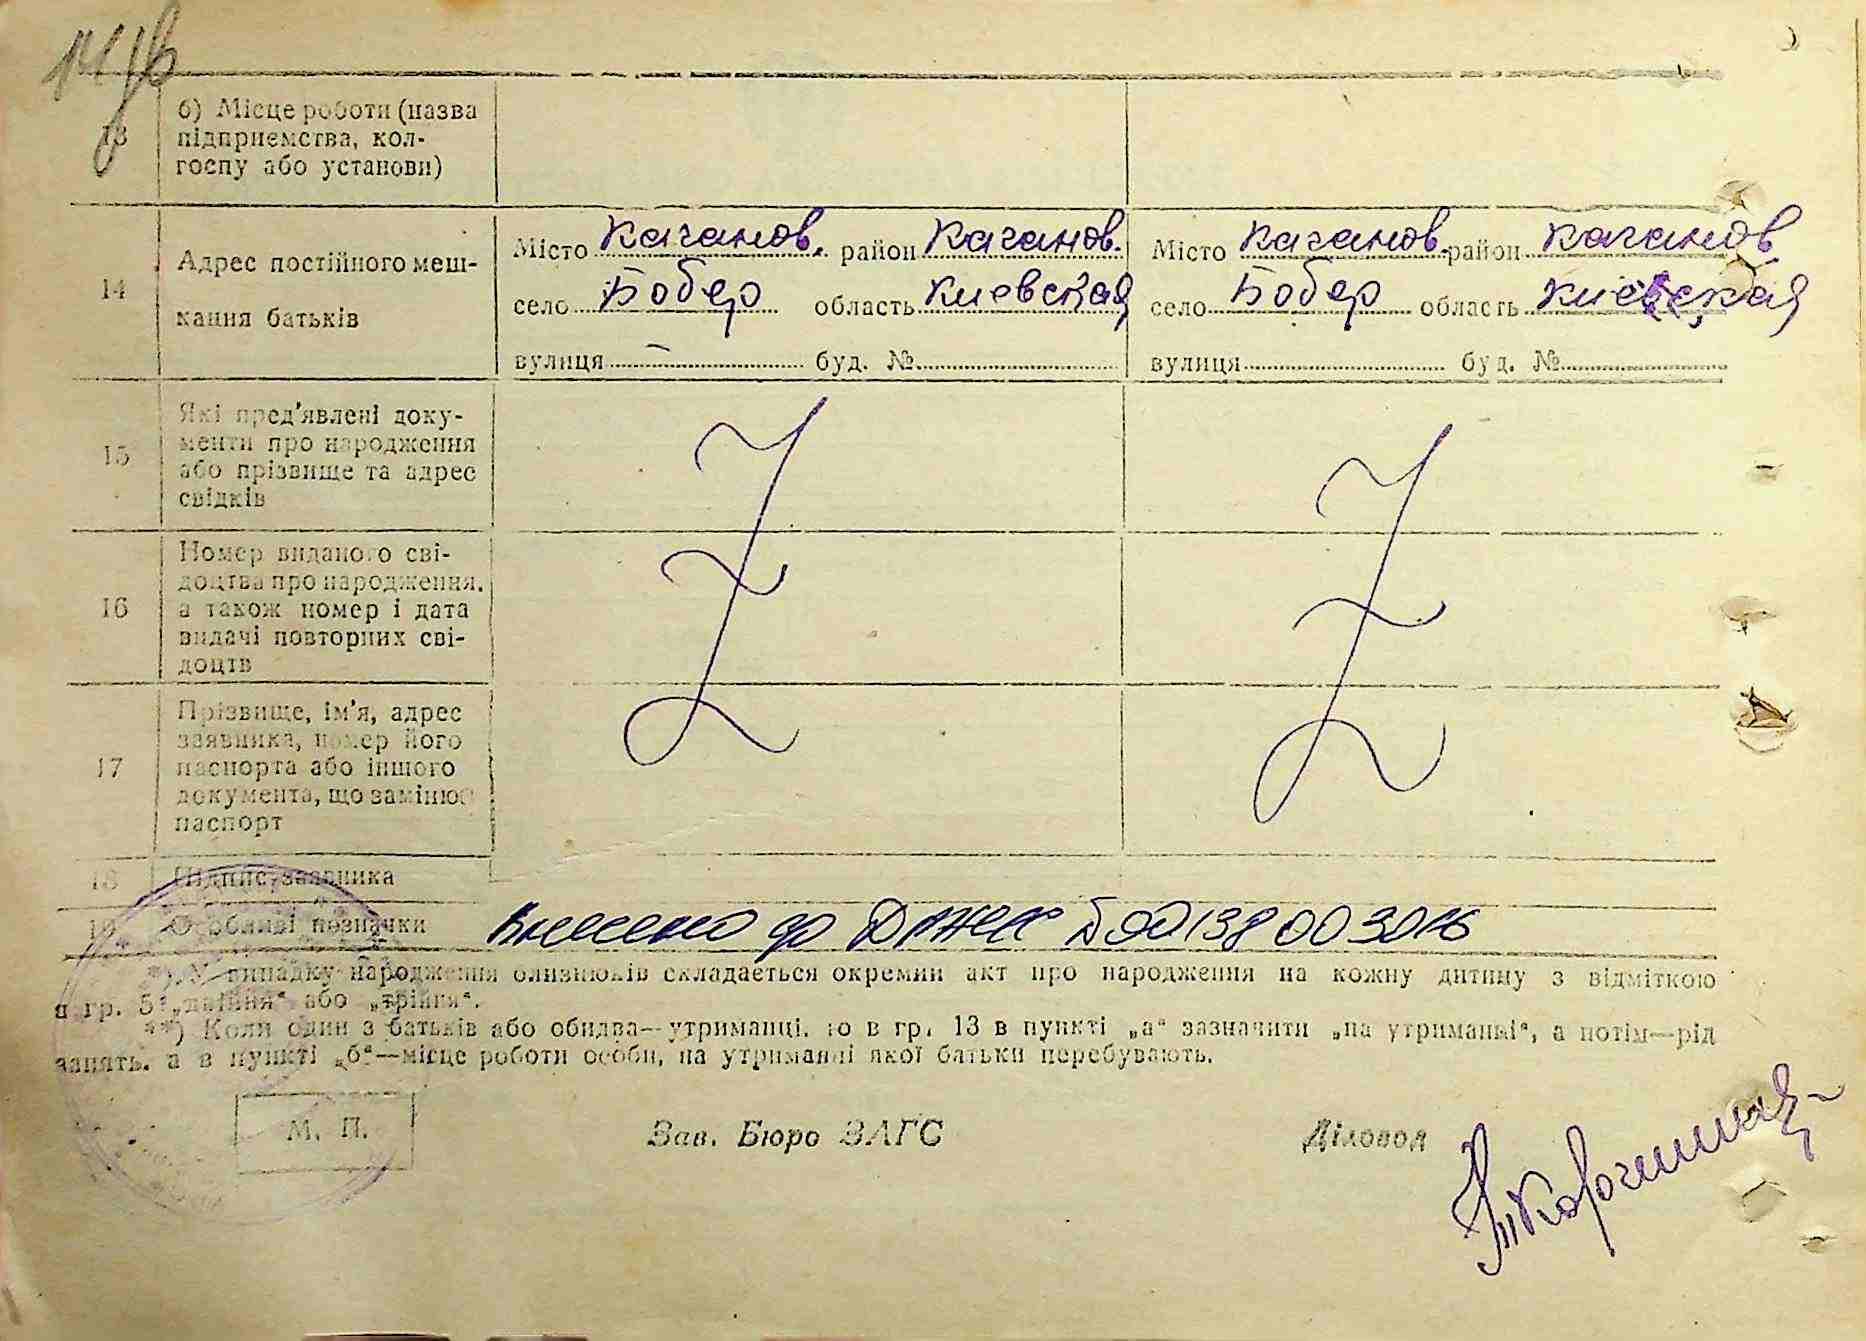 13 б) Місце роботи (назва
підприємства, кол-
госпу або установи)
14 Адрес постійного меш-
кання батьків
Місто Каганов. район Каганов.
село Бобер область Киевская
вулиця — буд. №
Місто Каганов. район Каганов
село Бобер область Киевская
вулиця буд. №
15 Які пред'явлені доку-
менти про народження
або прізвище та адрес
свідків
16 Номер виданого сві-
доцтва про народження,
а також номер і дата
видачі повторних сві-
доцтв
17 Прізвище, ім'я, адрес
заявника, номер його
паспорта або іншого
документа, що замінює
паспорт
18 Підпис заявника
19 Особливі позначки Внесено до
*) У випадку народження близнюків складається окремий акт про народження на кожну дитину з відміткою
в гр. 5 „двійня“ або „трійня“.
**) Коли один з батьків або обидва—утриманці, то в гр. 13 в пункті „а“ зазначити „на утриманні“, а потім—рід
занять, а в пункті „б“—місце роботи особи, на утриманні якої батьки перебувають.
М. П. Зав. Бюро ЗАГС Діловод